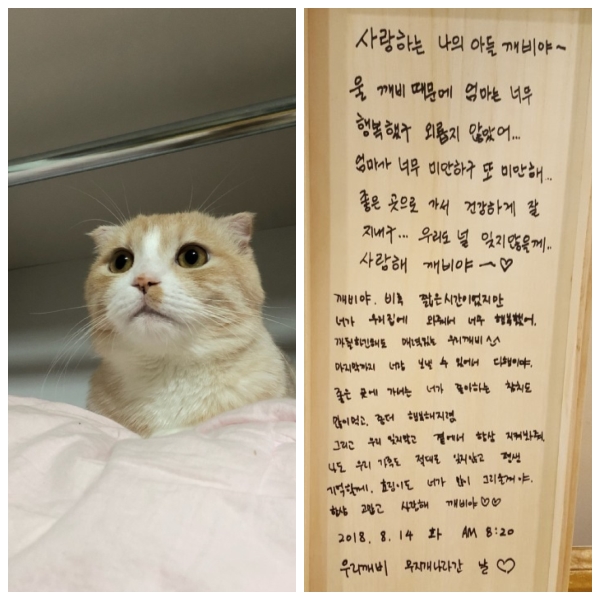 사랑하는 나의 아들 깨비야~
울 깨비 때문에 엄마는 너무
행복했구 외롭지 않았어...
엄마가 너무 미안하구 또 미안해..
좋은 곳으로 가서 건강하게 잘
지내구... 우리도 널 잊지않을게..
사랑해 깨비야~♡
깨비야. 비록 짧은시간이었지만
너가 우리집에 와줘서 너무 행복했어.
까칠하긴해도 매력있는 우리깨비 ^^
마지막까지 너랑 보낼 수 있어서 다행이야.
좋은 곳에 가서는 너가 좋아하는 참치도
많이먹고, 좀더 행복해지렴
그리고 우리 잊지말고 곁에서 항상 지켜봐줘.
우리 가족도 절대로 잊지않고 평생
기억할게. 너가 많이 그리울거야.
항상 고맙고 사랑해 깨비야♡♡
2018. 8. 14 화 AM 8:20
우리깨비 무지개나라간 날 ♡